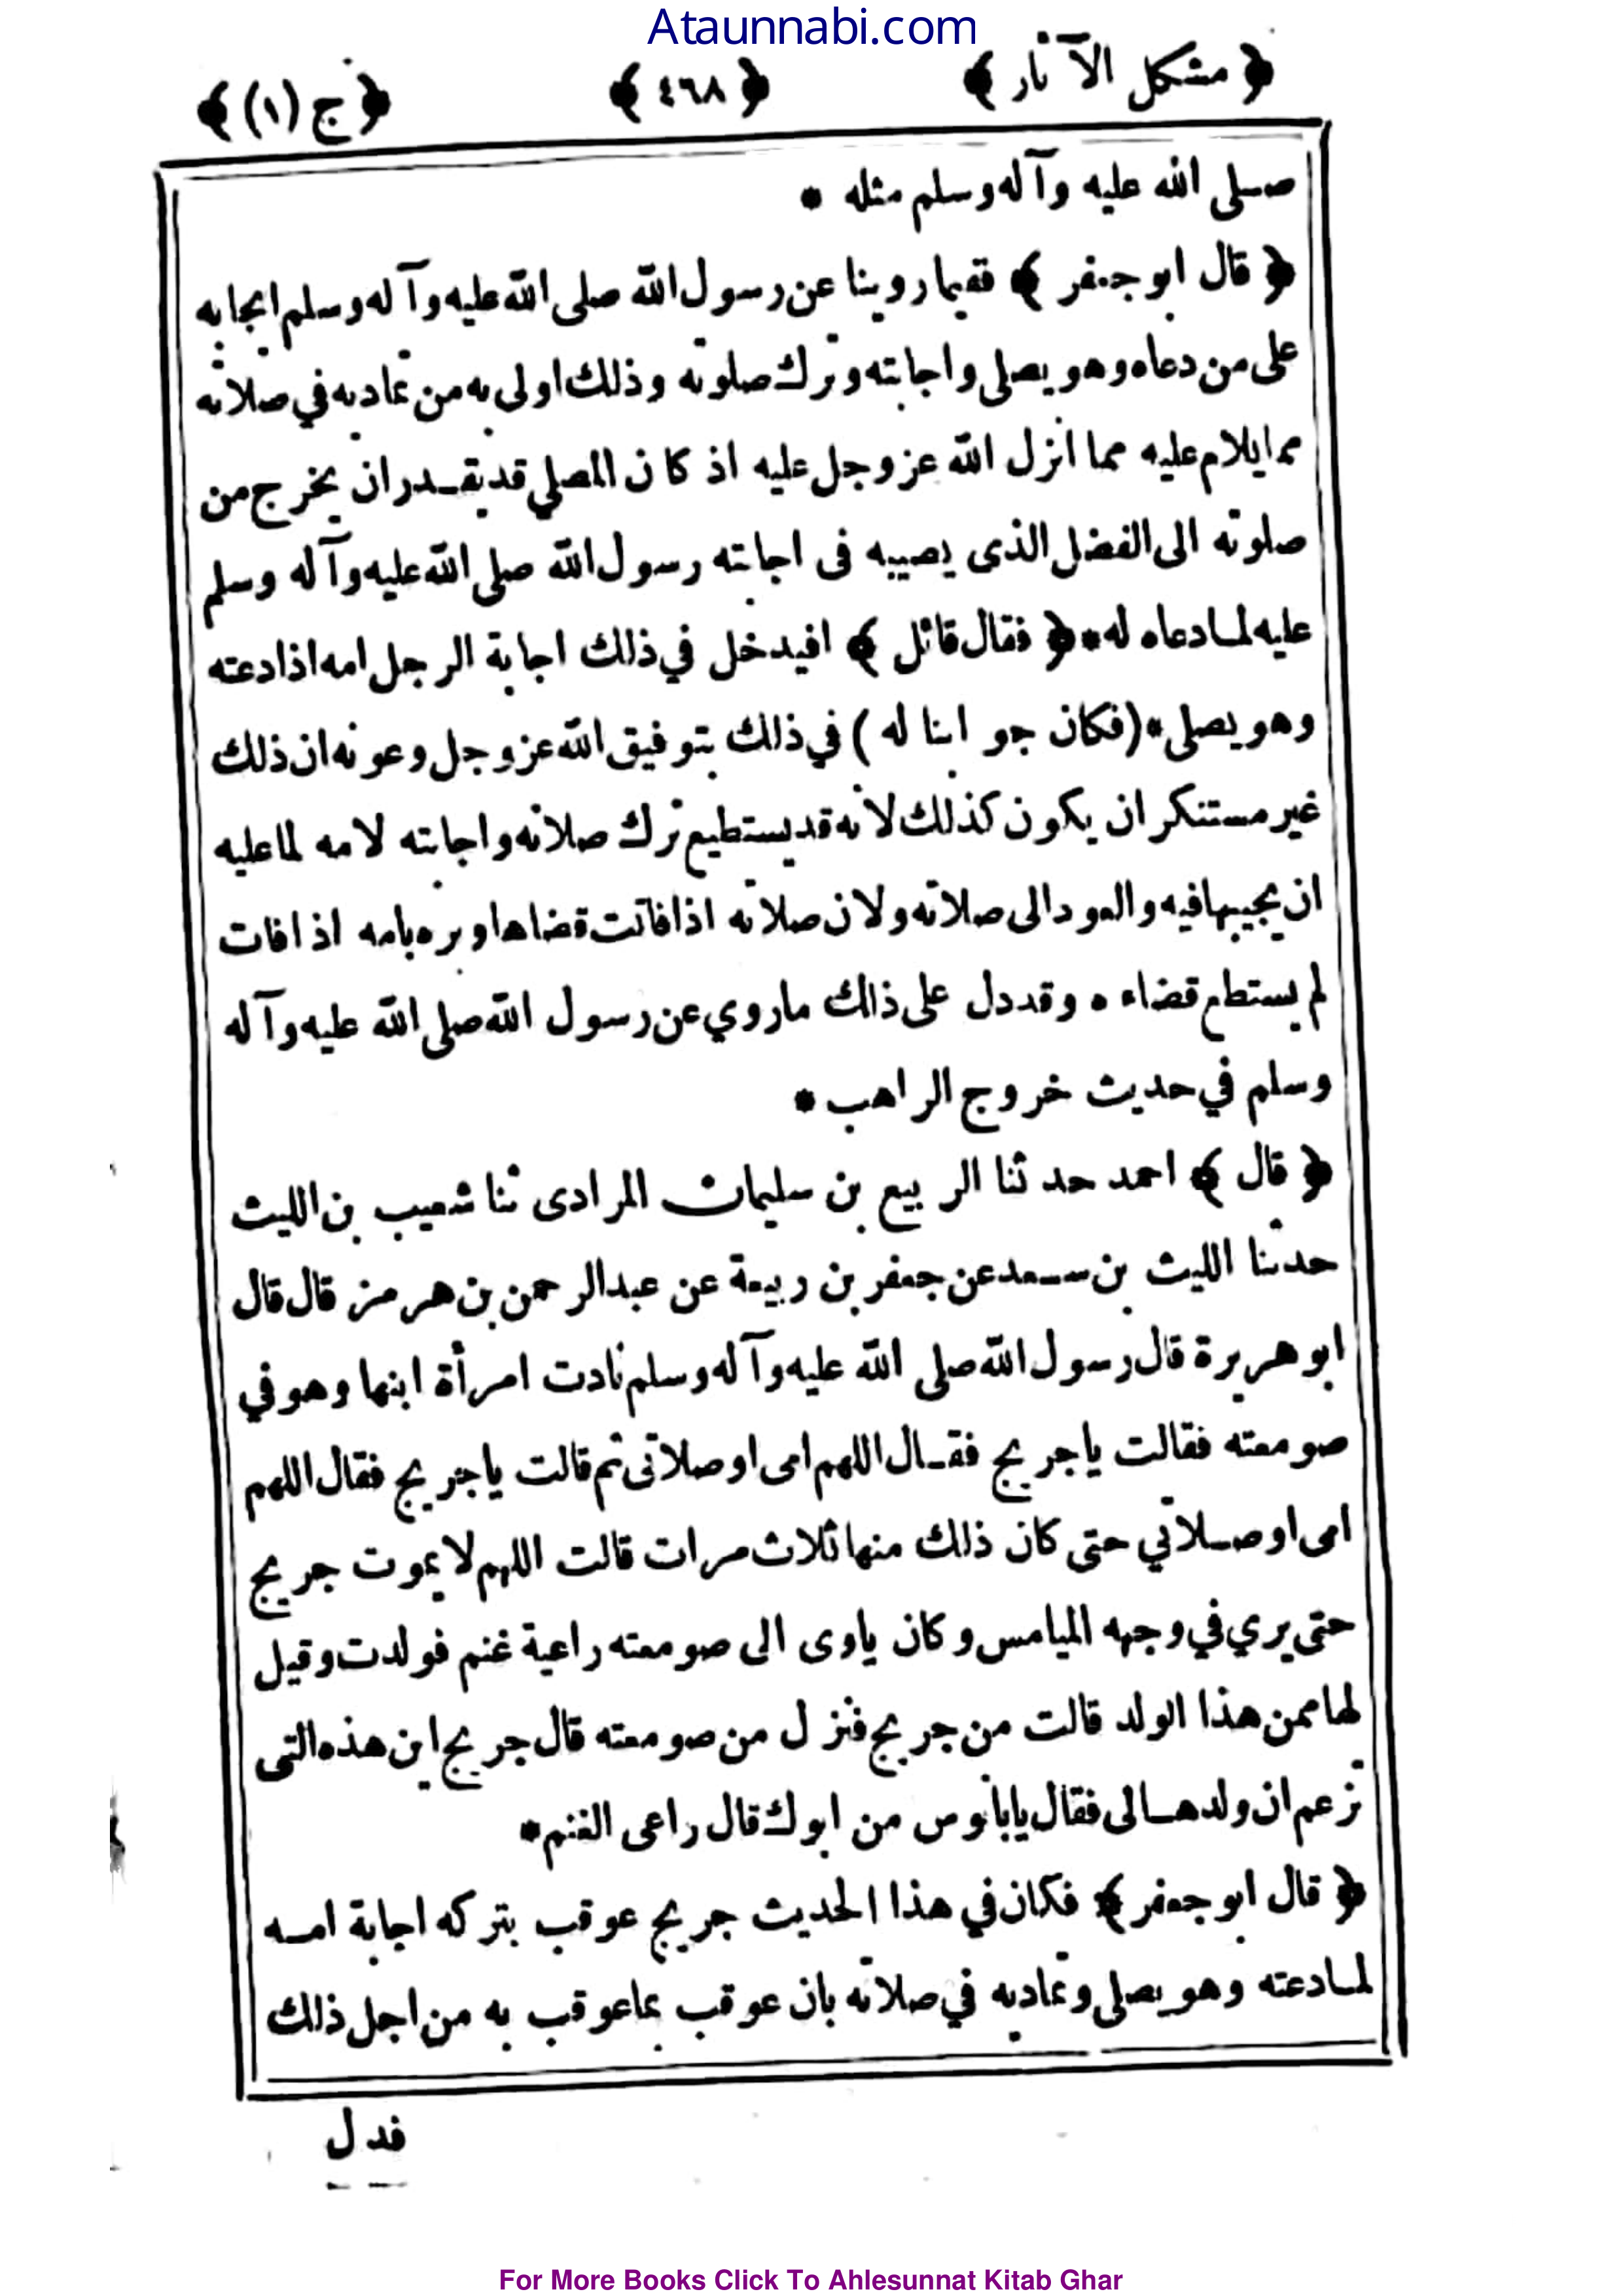 Ataunnabi.com
﴿ مشكل الآثار ﴾ ﴿ ٤٦٨ ﴾ ﴿ ج (١) ﴾
صلى الله عليه وآله وسلم مثله *
﴿ قال ابو جعفر ﴾ ففيما روينا عن رسول الله صلى الله عليه وآله وسلم ايجابه
على من دعاه وهو يصلى واجابته وترك صلوته وذلك اولى به من تماديه في صلاته
مما يلام عليه مما انزل الله عز وجل عليه اذ كان المصلي قد يقدر ان يخرج من
صلوته الى الفضل الذى يصيبه فى اجابته رسول الله صلى الله عليه وآله وسلم
عليه لما دعاه له * ﴿ فقال قائل ﴾ افيدخل في ذلك اجابة الرجل امه اذا دعته
وهو يصلى * (فكان جوابنا له) في ذلك بتوفيق الله عز وجل وعونه ان ذلك
غير مستنكر ان يكون كذلك لانه قد يستطيع ترك صلاته واجابته لامه لما عليه
ان يجيبها فيه والعود الى صلاته ولان صلاته اذا فاتت قضاها وبره بامه اذا فات
لم يستطع قضاءه وقد دل على ذلك ما روي عن رسول الله صلى الله عليه وآله
وسلم في حديث خروج الراهب *
﴿ قال ﴾ احمد حدثنا الربيع بن سليمان المرادى ثنا شعيب بن الليث
حدثنا الليث بن سعد عن جعفر بن ربيعة عن عبد الرحمن بن هرمز قال قال
ابو هريرة قال رسول الله صلى الله عليه وآله وسلم نادت امرأة ابنها وهو في
صومعته فقالت يا جريج فقال اللهم امى او صلاتى ثم قالت يا جريج فقال اللهم
امى او صلاتي حتى كان ذلك منها ثلاث مرات قالت اللهم لا يموت جريج
حتى يري في وجهه الميامس وكان ياوى الى صومعته راعية غنم فولدت وقيل
لها ممن هذا الولد قالت من جريج فنزل من صومعته قال جريج اين هذه التى
تزعم ان ولدها لى فقال يا بابوس من ابوك قال راعى الغنم *
﴿ قال ابو جعفر ﴾ فكان في هذا الحديث جريج عوقب بتركه اجابة امه
لما دعته وهو يصلى وتماديه في صلاته بان عوقب بما عوقب به من اجل ذلك
فدل
For More Books Click To Ahlesunnat Kitab Ghar